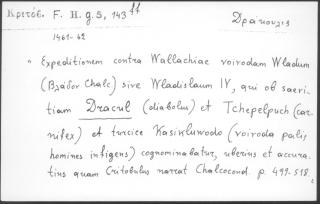 Κριτόβ. F. H. g. 5, 143 ff
Δρακουλις
1461-62
" Expeditionem contra Wallachiae voivodam Wladum
(Βλάδον Chalc) sive Wladislaum IV, qui ob saevi-
tiam Dracul (diabolus) et Tchepelpuch (car-
nifex) et turcice Kasikluwodo (voivoda palis
homines infigens) cognominabatur, uberius et accura-
tius quam Critobulus narrat Chalcocond. p. 499-518.